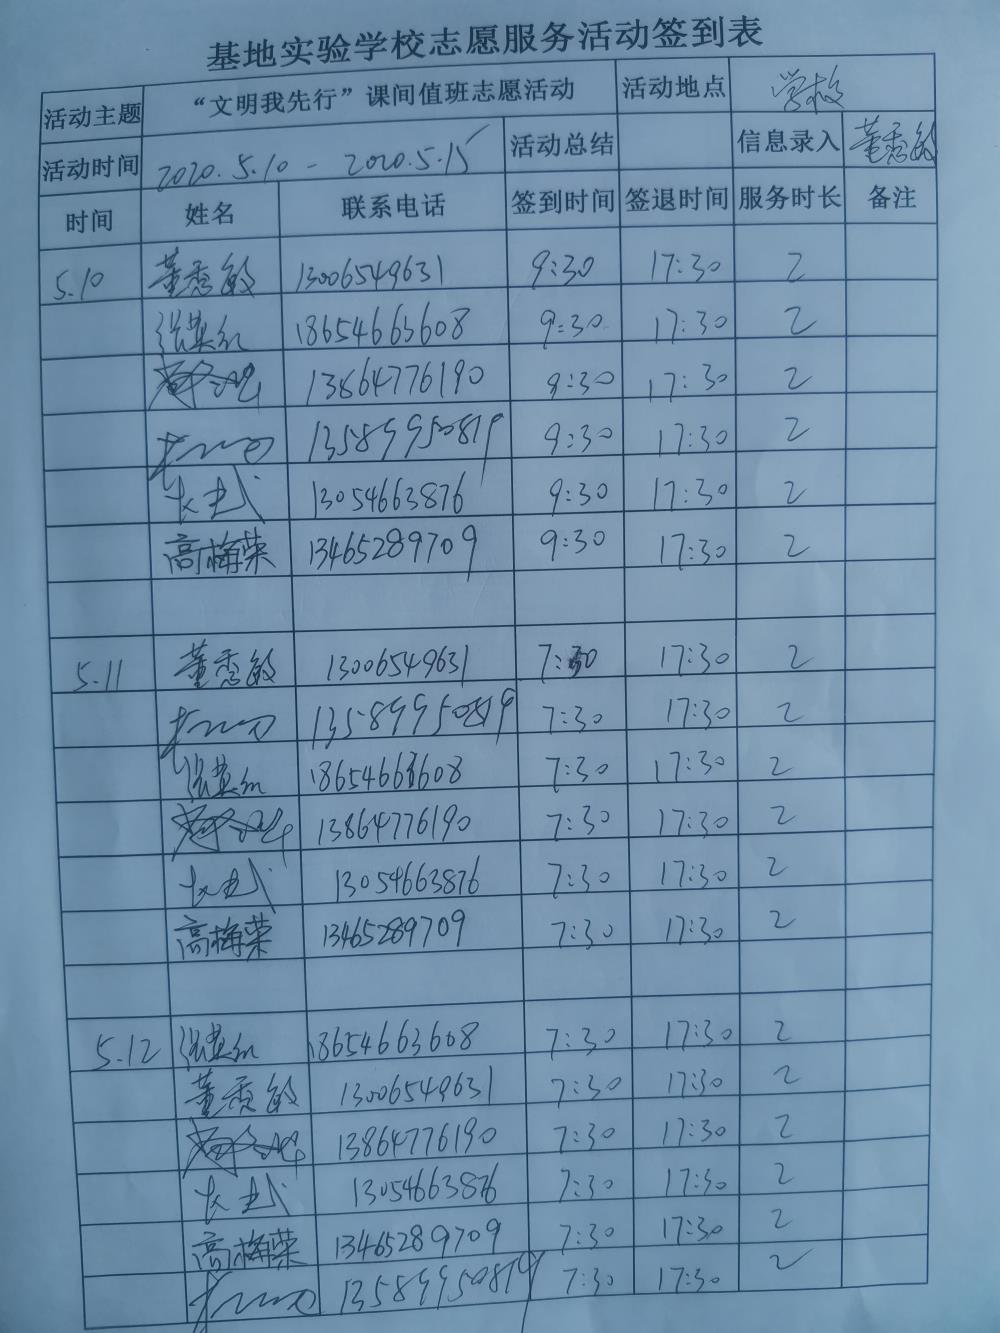 基地实验学校志愿服务活动签到表
活动主题 “文明我先行”课间值班志愿活动 活动地点 学校
活动时间 2020.5.10 - 2020.5.15 活动总结 信息录入 董秀敏
时间 姓名 联系电话 签到时间 签退时间 服务时长 备注
5.10 董秀敏 13006549631 9:30 17:30 2
张英红 18654663608 9:30 17:30 2
13864776190 9:30 17:30 2
13589950819 9:30 17:30 2
13054663876 9:30 17:30 2
高梅荣 13465289709 9:30 17:30 2
5.11 董秀敏 13006549631 7:30 17:30 2
13589950819 7:30 17:30 2
张英红 18654663608 7:30 17:30 2
13864776190 7:30 17:30 2
13054663876 7:30 17:30 2
高梅荣 13465289709 7:30 17:30 2
5.12 张英红 18654663608 7:30 17:30 2
董秀敏 13006549631 7:30 17:30 2
13864776190 7:30 17:30 2
13054663876 7:30 17:30 2
高梅荣 13465289709 7:30 17:30 2
13589950819 7:30 17:30 2